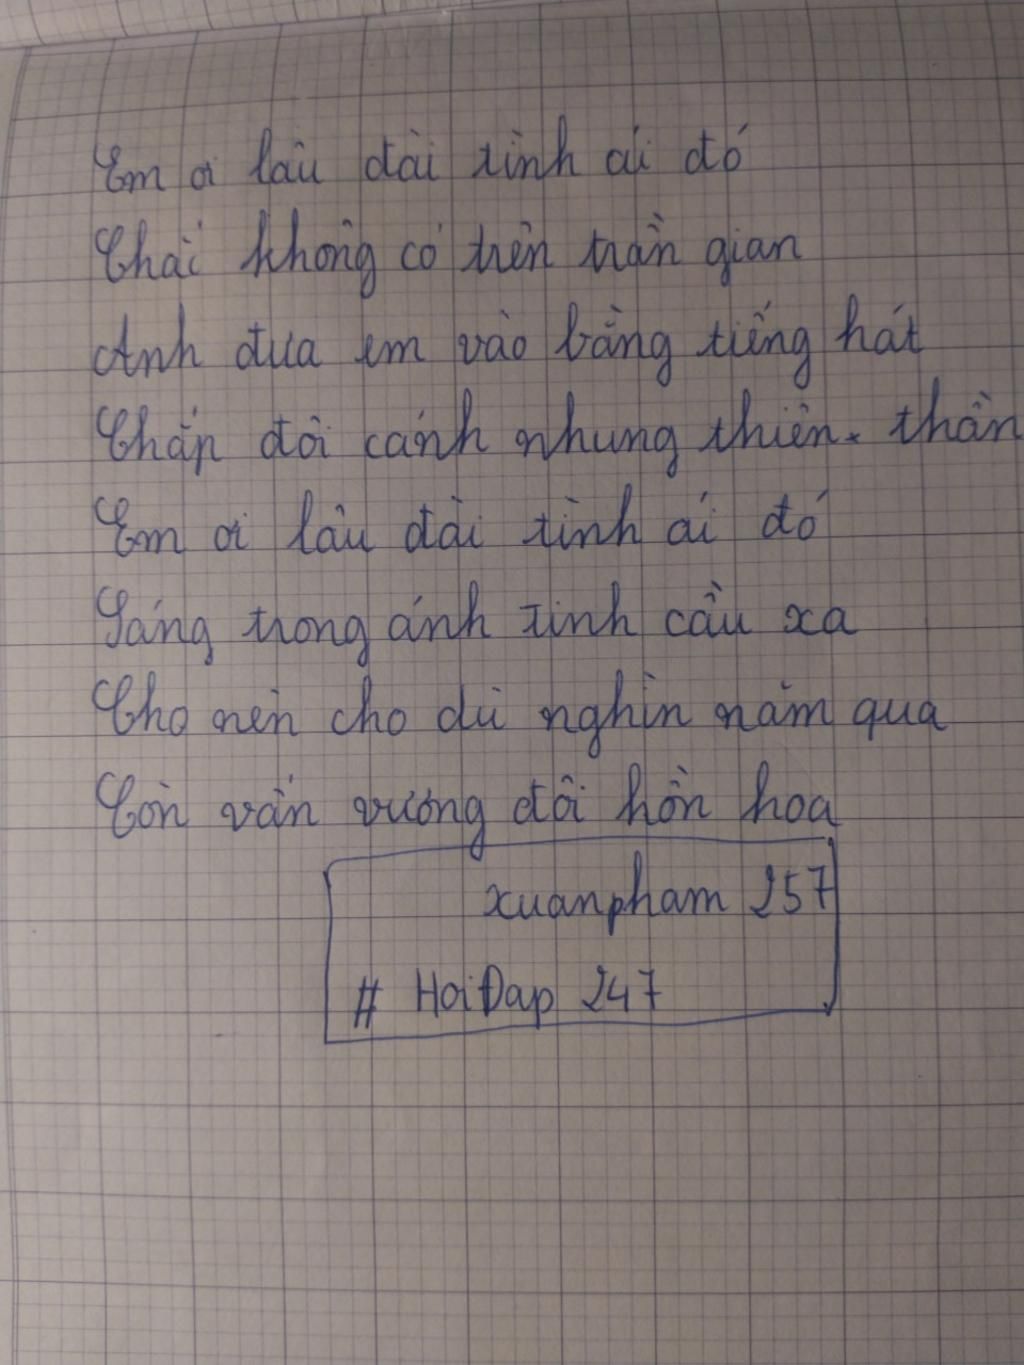 Em ơi lâu đài tình ái đó
Chắc không có trên trần gian
Anh đưa em vào bằng tiếng hát
Chắp đôi cánh nhung thiên thần
Em ơi lâu đài tình ái đó
Sáng trong ánh tinh cầu xa
Cho nên cho dù nghìn năm qua
Còn vấn vương đôi hồn hoa
xuanpham 257
# HoiĐap 247